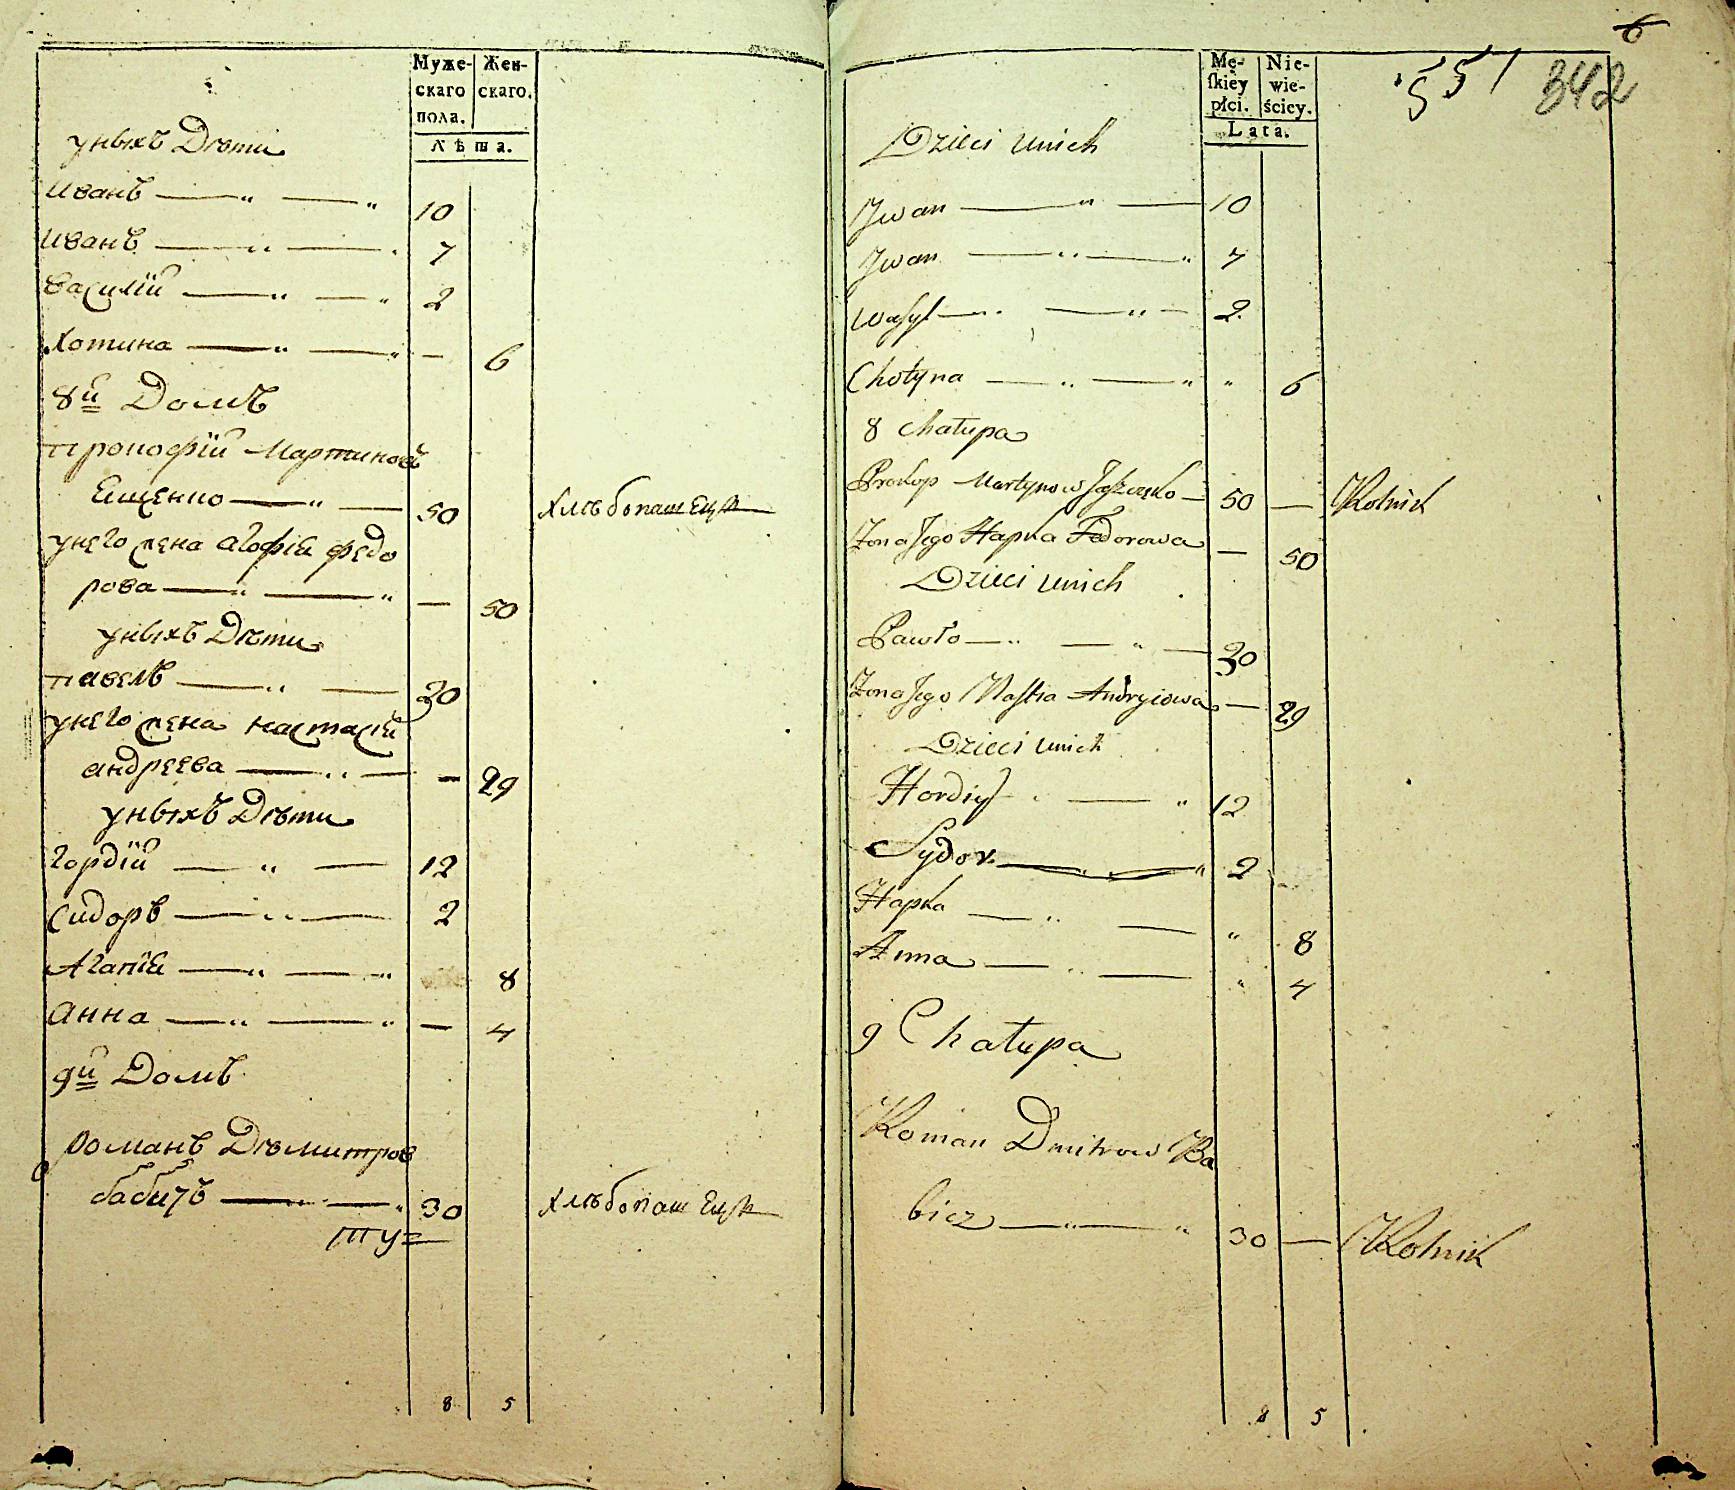 Муже-
скаго
пола.
Жен-
скаго.
Лѣта.
у ныхъ Дѣти
Иванъ 10
Иванъ 7
Василїй 2
Хотина — 6
8й Домъ
Прокофїй Мартиновъ
Ященко 50 Хлѣбопашецъ
у него жена Агофїя Федо
рова — 50
у ныхъ Дѣти
Павелъ 30
у него жена Настасїя
Андреева — 29
у ныхъ Дѣти
Гордїй 12
Сидоръ 2
Агапїя 8
Анна — 4
9й Домъ
Романъ Дѣмитров
бабичъ 30 Хлѣбопашецъ
ту=
8 5
6
Mę-
ſkiey
płci.
Nie-
wie-
ściey.
Lata.
551 342
Dzieci u nich
Jwan 10
Jwan 7
Wasyl 2
Chotyna " 6
8 Chałupa
Prokop Martynow Jaszczenko 50 — Rolnik
Żona Jego Hapka Fedorowa — 50
Dzieci u nich
Pawło 30
Żona Jego Nastia Andryiowa — 29
Dzieci u nich
Hordiy 12
Sydor 2
Hapka " 8
Anna " 4
9 Chałupa
Roman Dmitrow Ba
bicz 30 — Rolnik
8 5